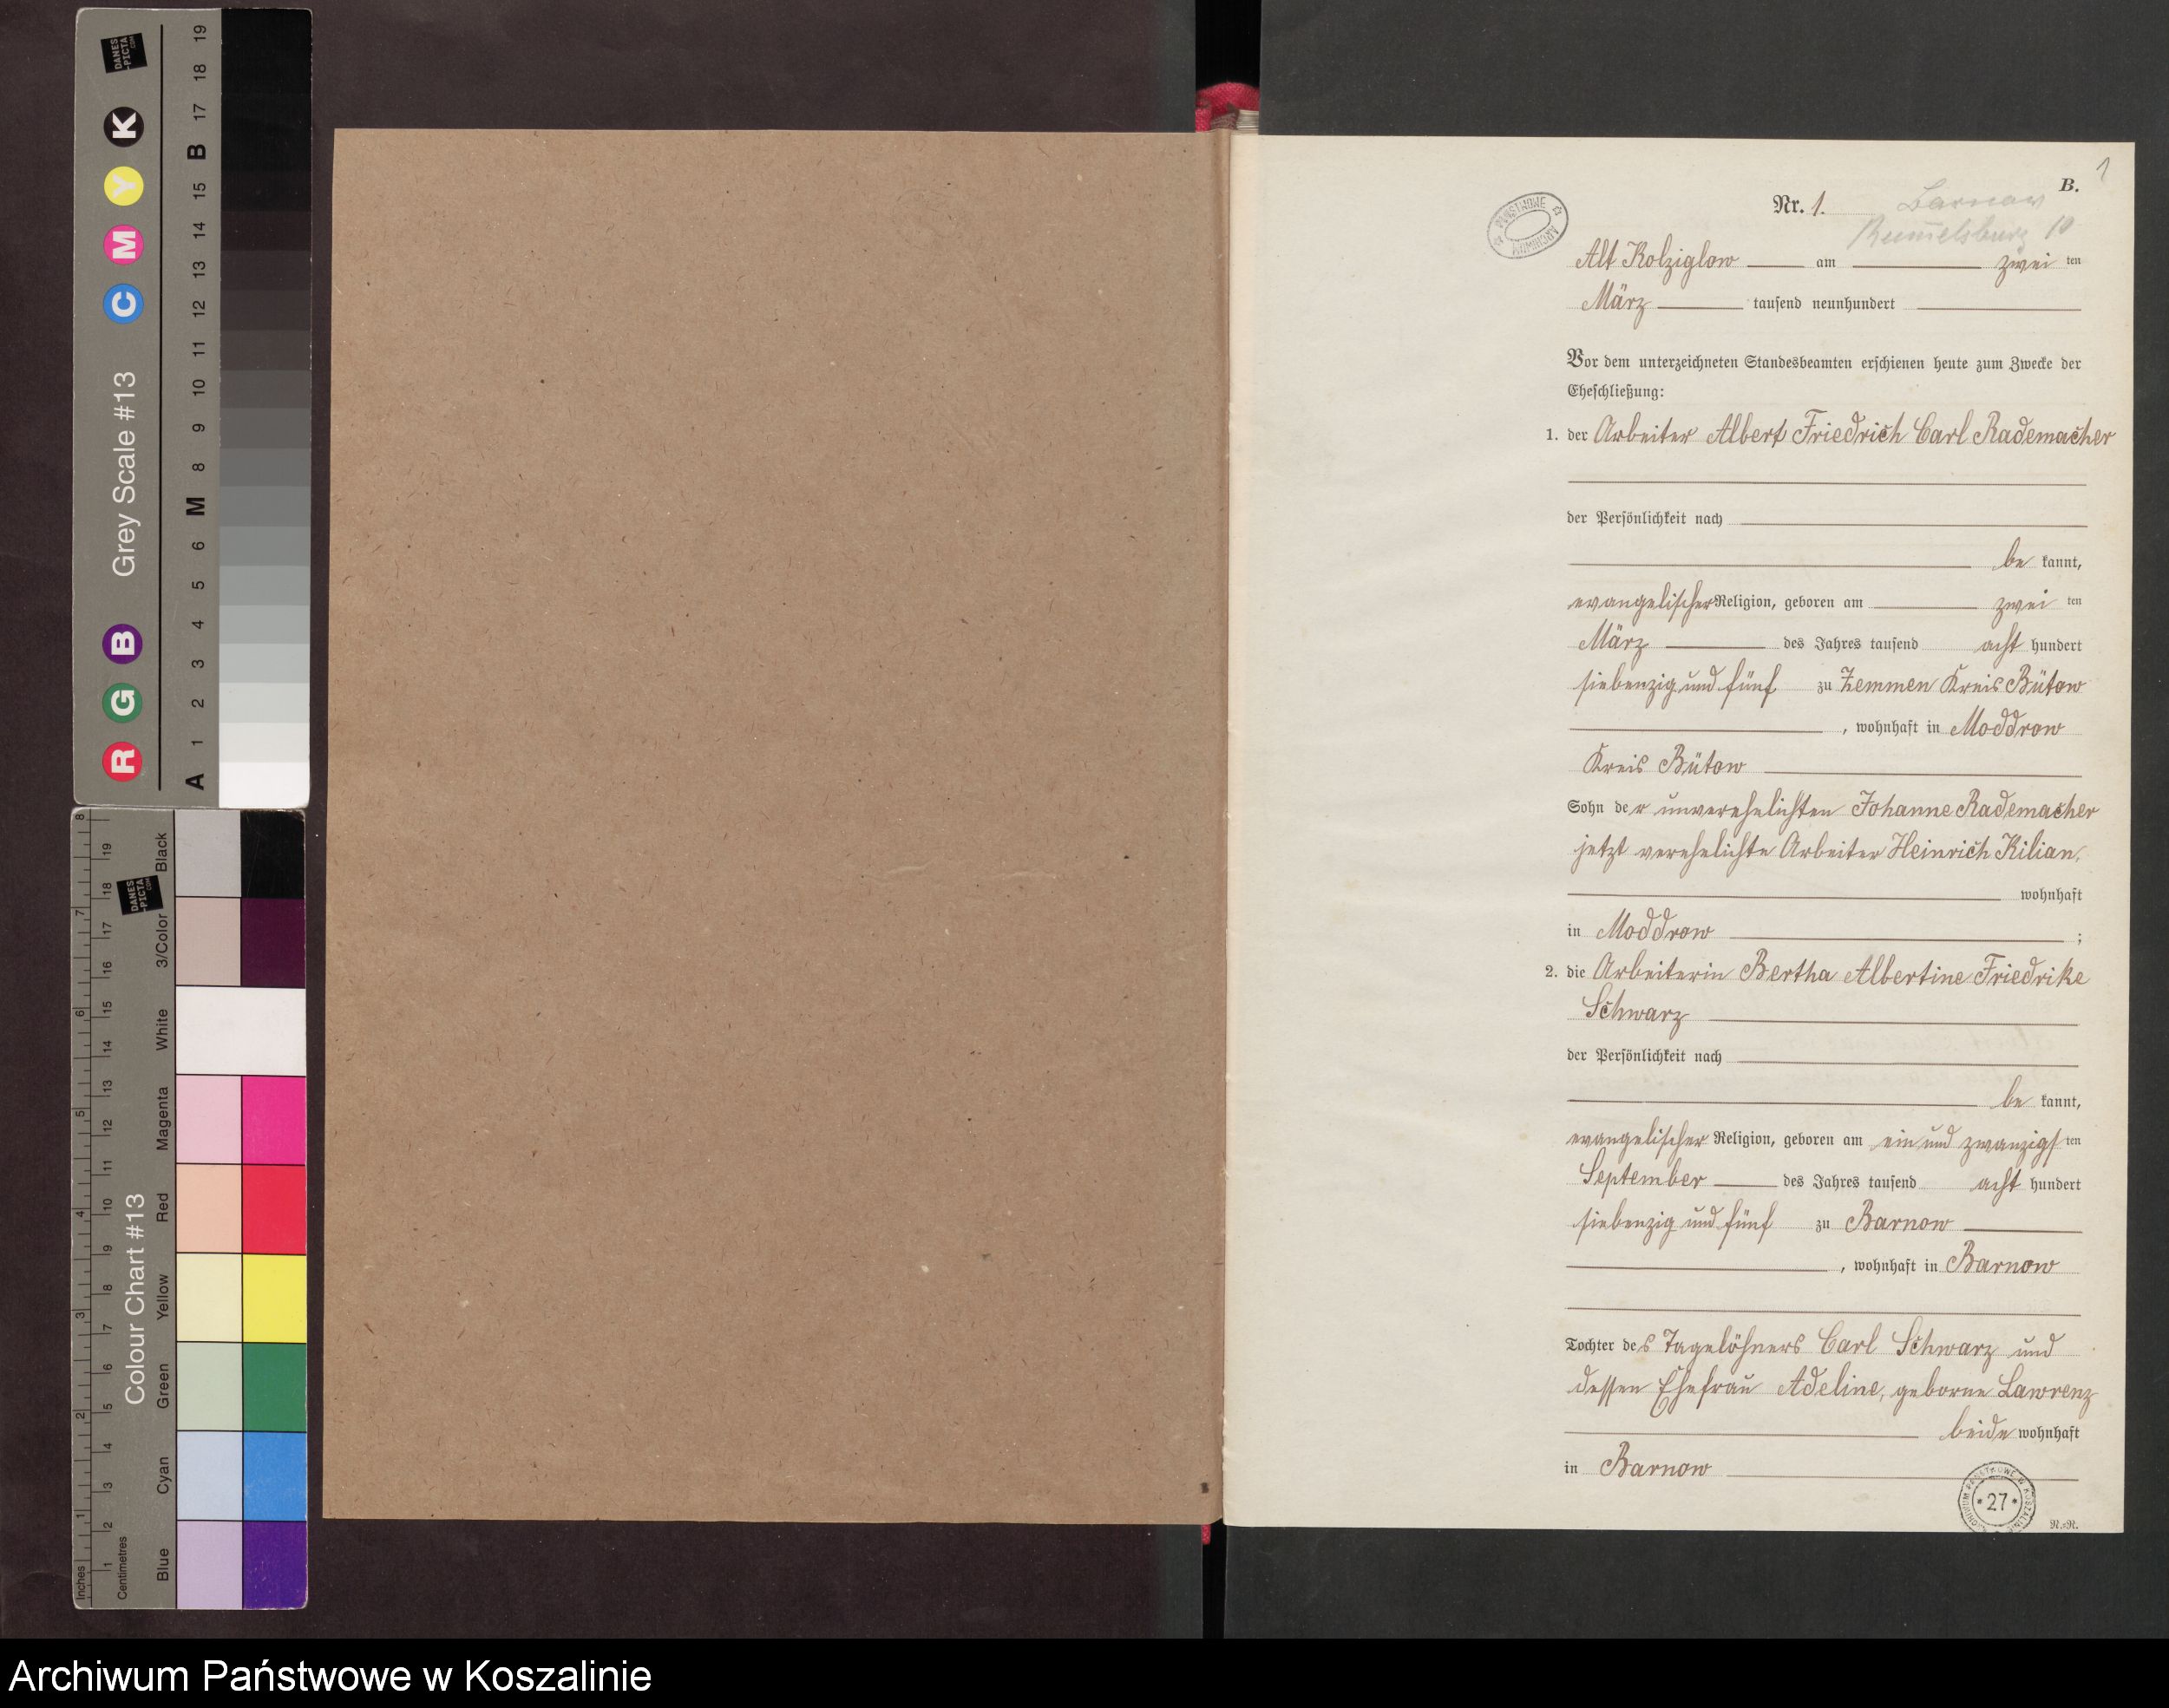 DANES
-PICTA
.COM
R G B Grey Scale #13 C M Y K
A 1 2 3 4 5 6 M 8 9 10 11 12 13 14 15 B 17 18 19
Colour Chart #13
Blue Cyan Green Yellow Red Magenta White 3/Color Black
Inches 1 2 3 4 5 6 7 8
Centimetres 1 2 3 4 5 6 7 8 9 10 11 12 13 14 15 16 17 18 19
DANES
-PICTA
.COM
1
B.
Nr. 1. Barnow
Rummelsburg 10
ARCHIWUM PAŃSTWOWE
Alt Kolziglow am zwei ten
März tausend neunhundert
Vor dem unterzeichneten Standesbeamten erschienen heute zum Zwecke der
Eheschließung:
1. der Arbeiter Albert Friedrich Carl Rademacher
der Persönlichkeit nach
be kannt,
evangelischer Religion, geboren am zwei ten
März des Jahres tausend acht hundert
siebenzig und fünf zu Zemmen Kreis Bütow
, wohnhaft in Moddrow
Kreis Bütow
Sohn der unverehelichten Johanne Rademacher
jetzt verehelichte Arbeiter Heinrich Kilian,
wohnhaft
in Moddrow ;
2. die Arbeiterin Bertha Albertine Friedrike
Schwarz
der Persönlichkeit nach
be kannt,
evangelischer Religion, geboren am ein und zwanzigsten
September des Jahres tausend acht hundert
siebenzig und fünf zu Barnow
, wohnhaft in Barnow
Tochter des Tagelöhners Carl Schwarz und
dessen Ehefrau Adeline, geborne Lawrenz
beide wohnhaft
in Barnow
ARCHIWUM PAŃSTWOWE W KOSZALINIE
* 27 *
R.-R.
Archiwum Państwowe w Koszalinie